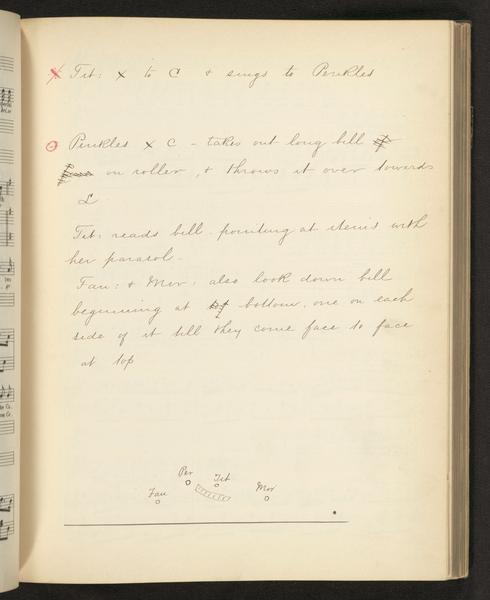 x Tit: x to C & sings to Perikles
Perikles x C - takes out long bill
on roller, & throws it over towards
L
Tit: reads bill - pointing at items with
her parasol -
Fau: & Mor: also look down bill
beginning at bottom, one on each
side of it till they come face to face
at top
Per Tit
Fau Mor